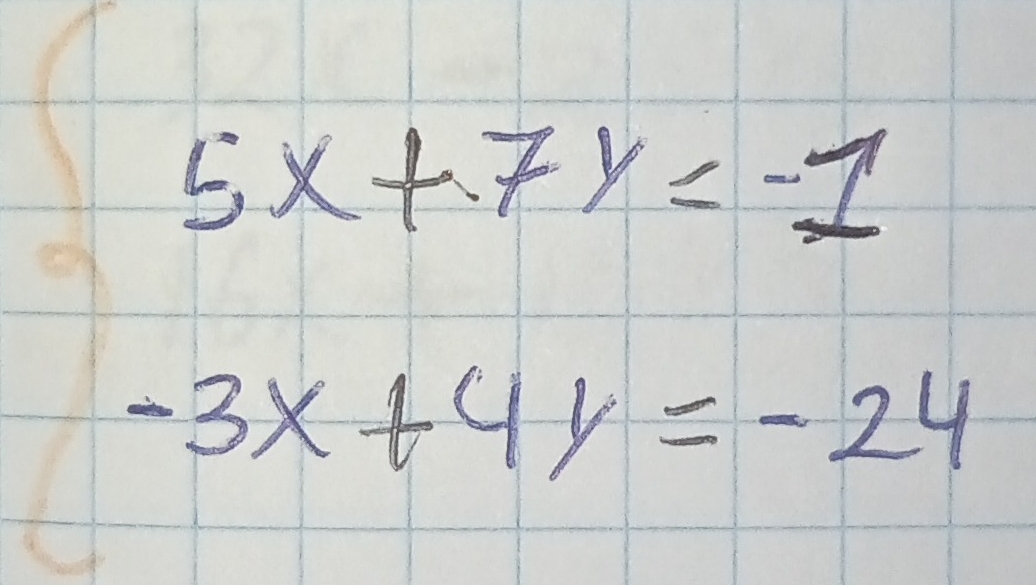 5x + 7y = -1
-3x + 4y = -24